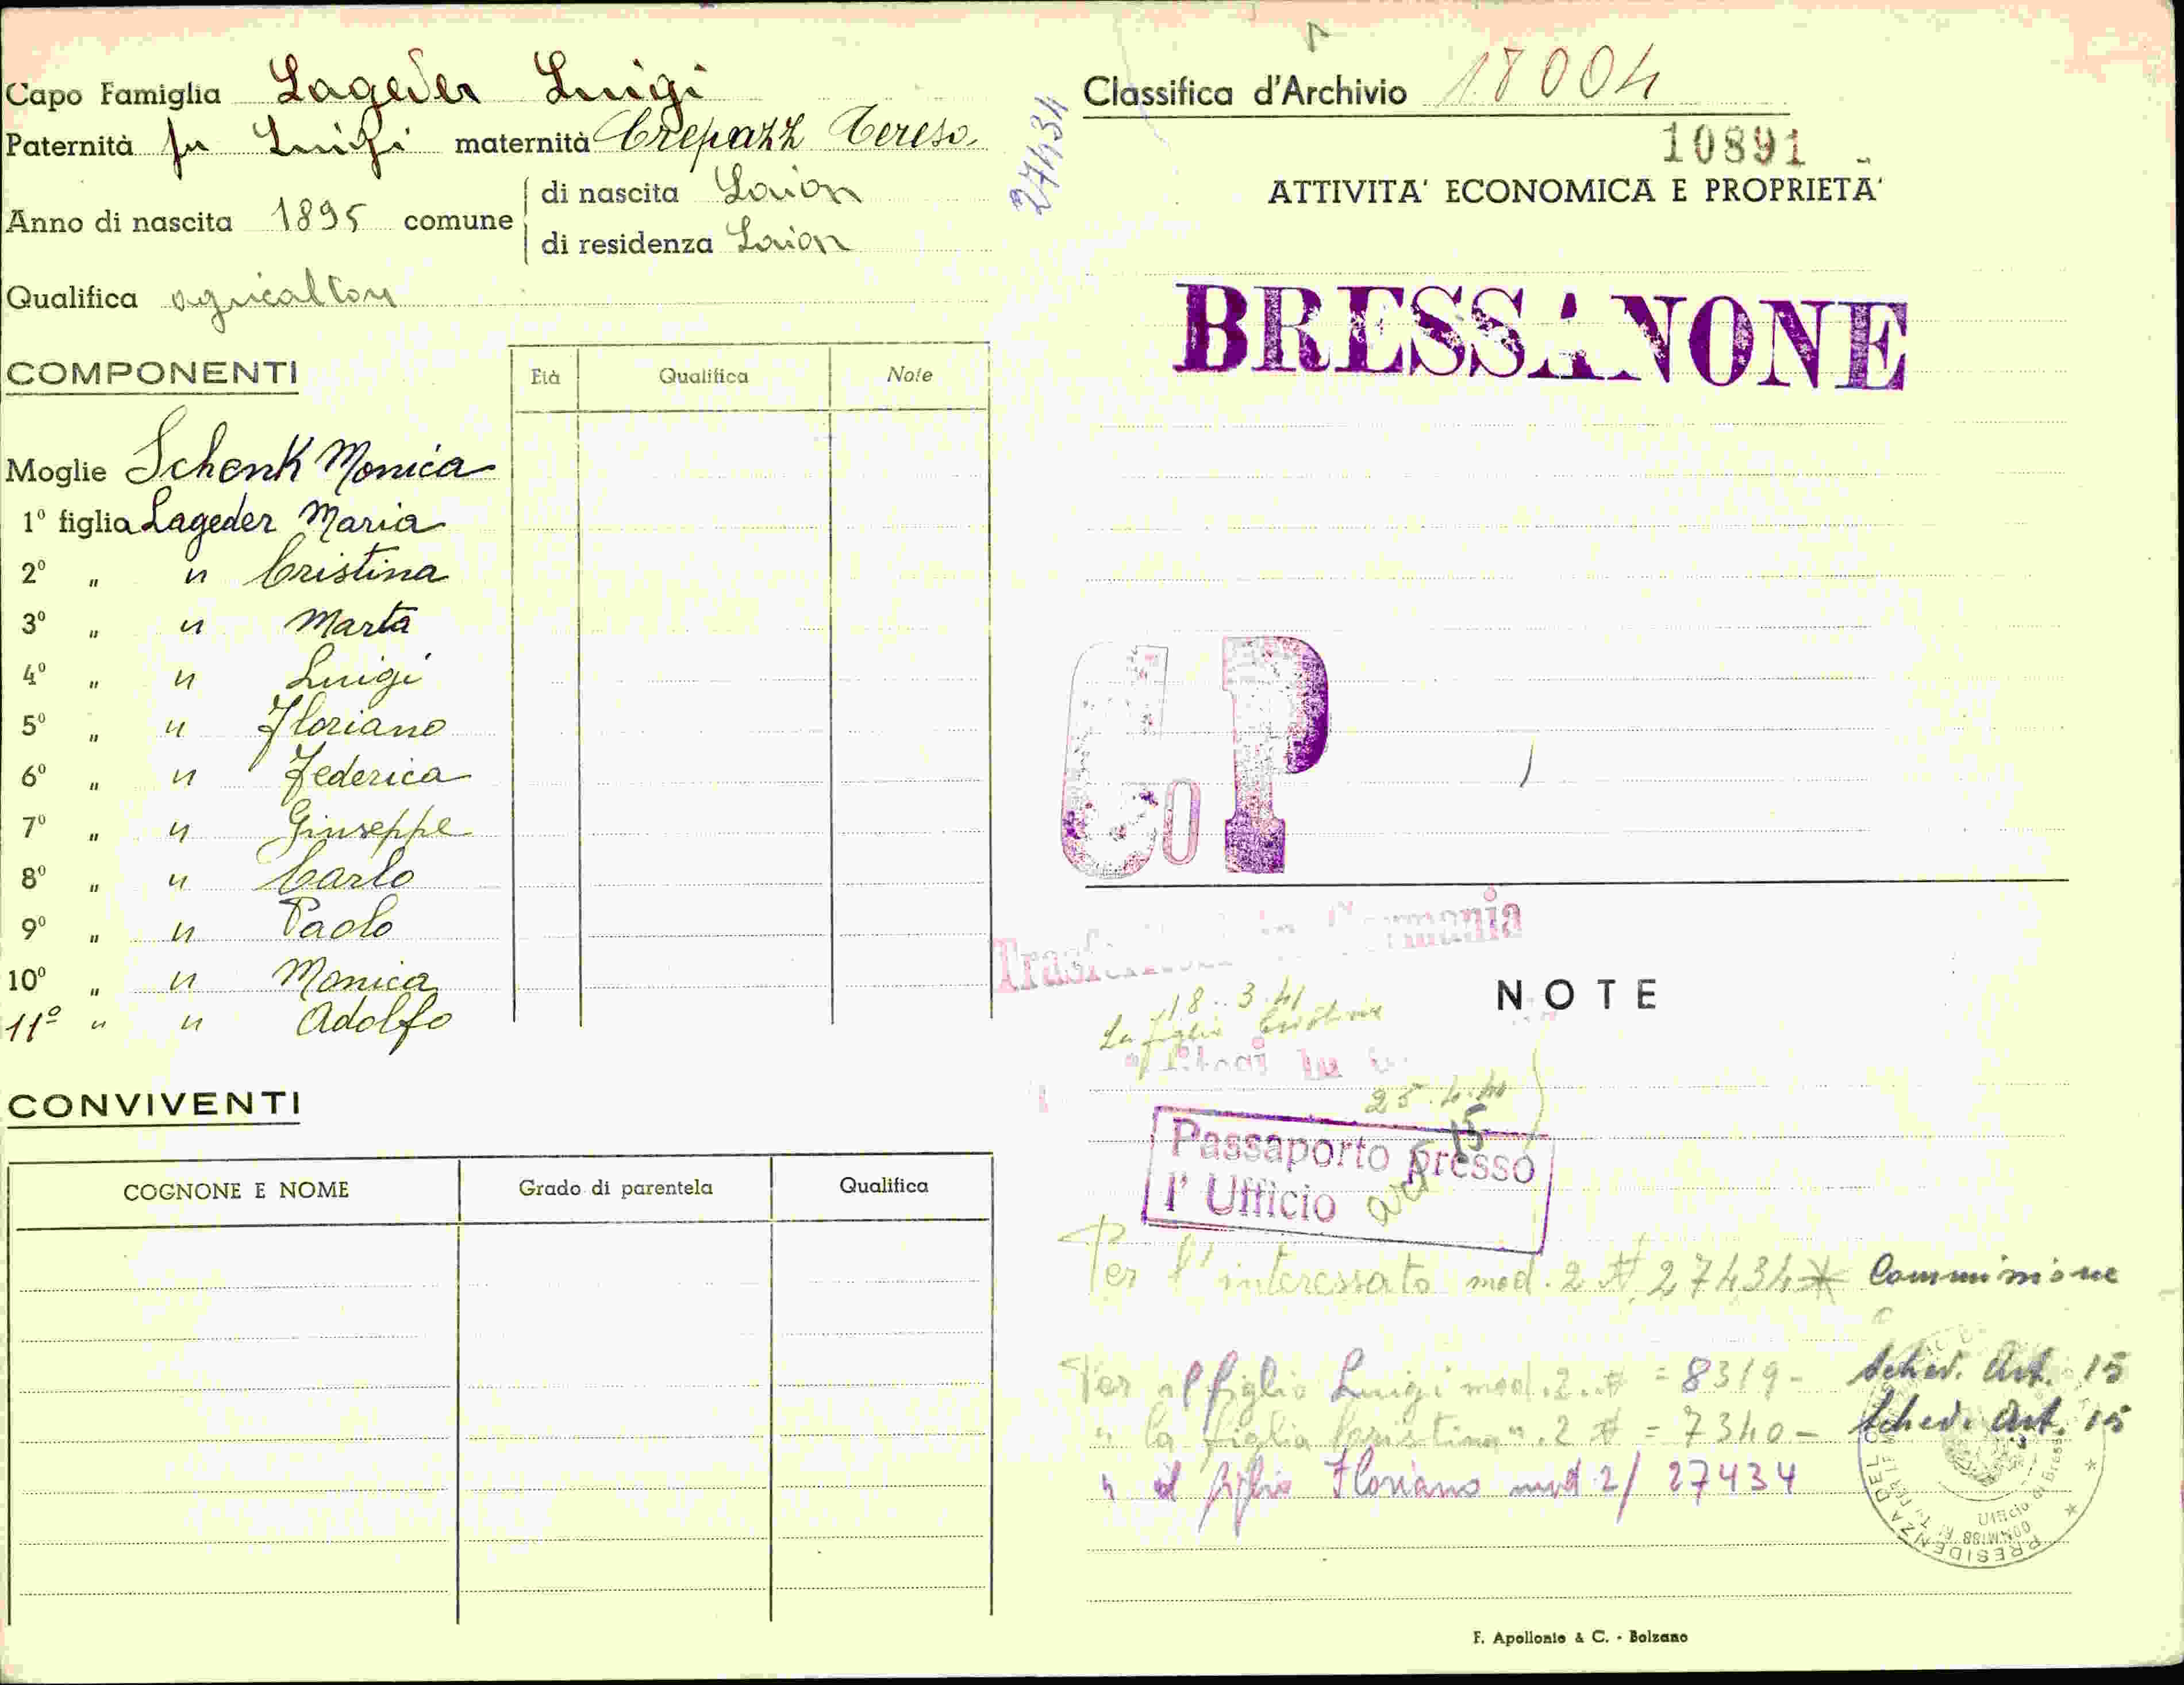 Capo Famiglia Lageder Luigi
Paternità fu Luigi maternità Crepazz Teresa
Anno di nascita 1895 comune
di nascita Laion
di residenza Laion
Qualifica agricoltore
COMPONENTI
Età Qualifica Note
Moglie Schenk Monica
1º figlia Lageder Maria
2º „ " Cristina
3º „ " Marta
4º „ " Luigi
5º „ " Floriano
6º „ " Federica
7º „ " Giuseppe
8º „ " Carlo
9º „ " Paolo
10º „ " Monica
11º " " Adolfo
CONVIVENTI
COGNONE E NOME Grado di parentela Qualifica
27434
Classifica d'Archivio 18004
10891 -
ATTIVITA' ECONOMICA E PROPRIETA'
BRESSANONE
CoP
Germania
18.3.41
La figlia Cristina
NOTE
25.4.40
Passaporto presso
l' Ufficio
art 15
Per l'interessato mod. 2 # 27434 * Commissione
Per il figlio Luigi mod. 2 # = 8319 - Sched. Art. 15
" la figlia Cristina " . 2 # = 7340 - Sched. Art. 15
" il figlio Floriano mod 2/ 27434
PRESIDENZA DEL
Ufficio di Bress
F. Apollonio & C. - Bolzano